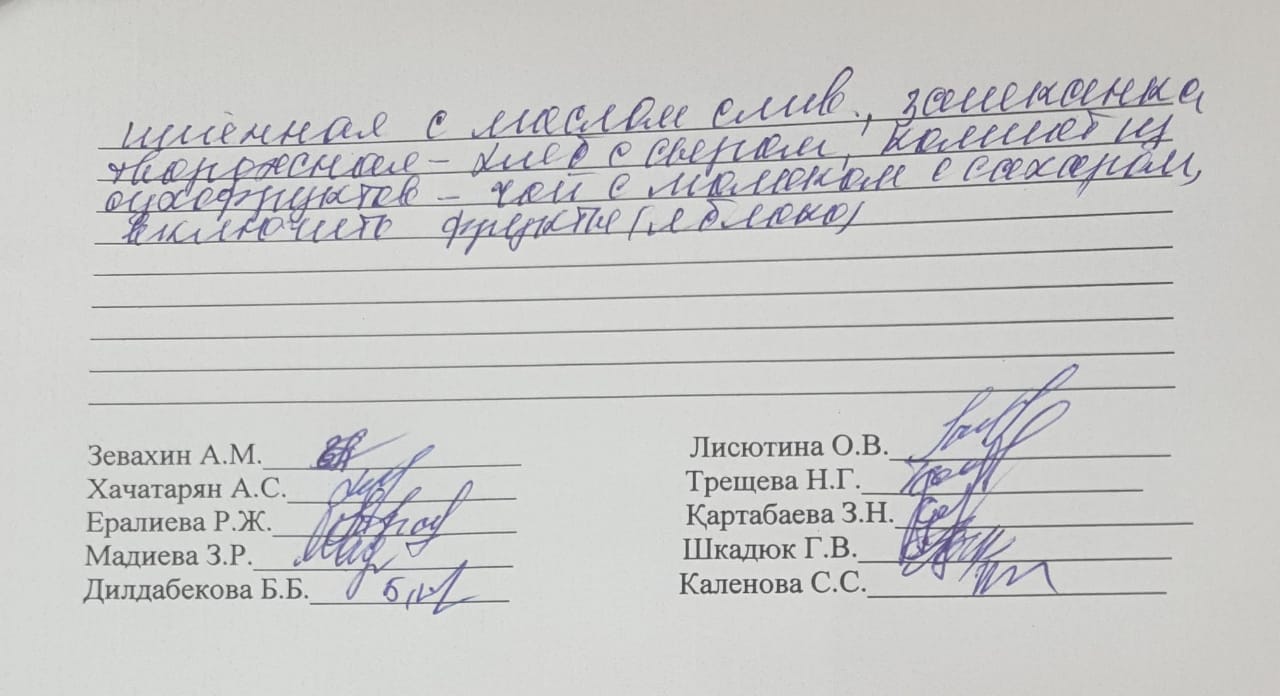 пшённая с маслом слив., запеканка
творожная – хлеб с сыром, компот из
сухофруктов – чай с молоком с сахаром,
включить фрукты (яблоко)
Зевахин А.М.
Лисютина О.В.
Хачатарян А.С.
Трещева Н.Г.
Ералиева Р.Ж.
Қартабаева З.Н.
Мадиева З.Р.
Шкадюк Г.В.
Дилдабекова Б.Б.
Каленова С.С.